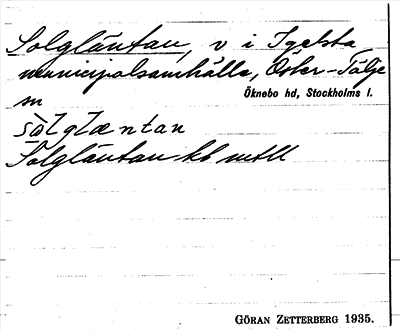 Solgläntan, v i Igelsta
municipalsamhälle, Öster-Tälje
sn
Öknebo hd, Stockholms l.
sòlglæntan
Solgläntan kb mtll
GÖRAN ZETTERBERG 1935.